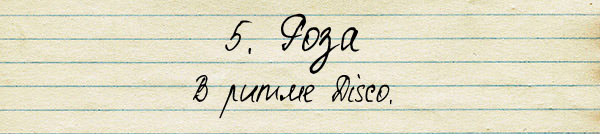 5. Роза
В ритме Disco.